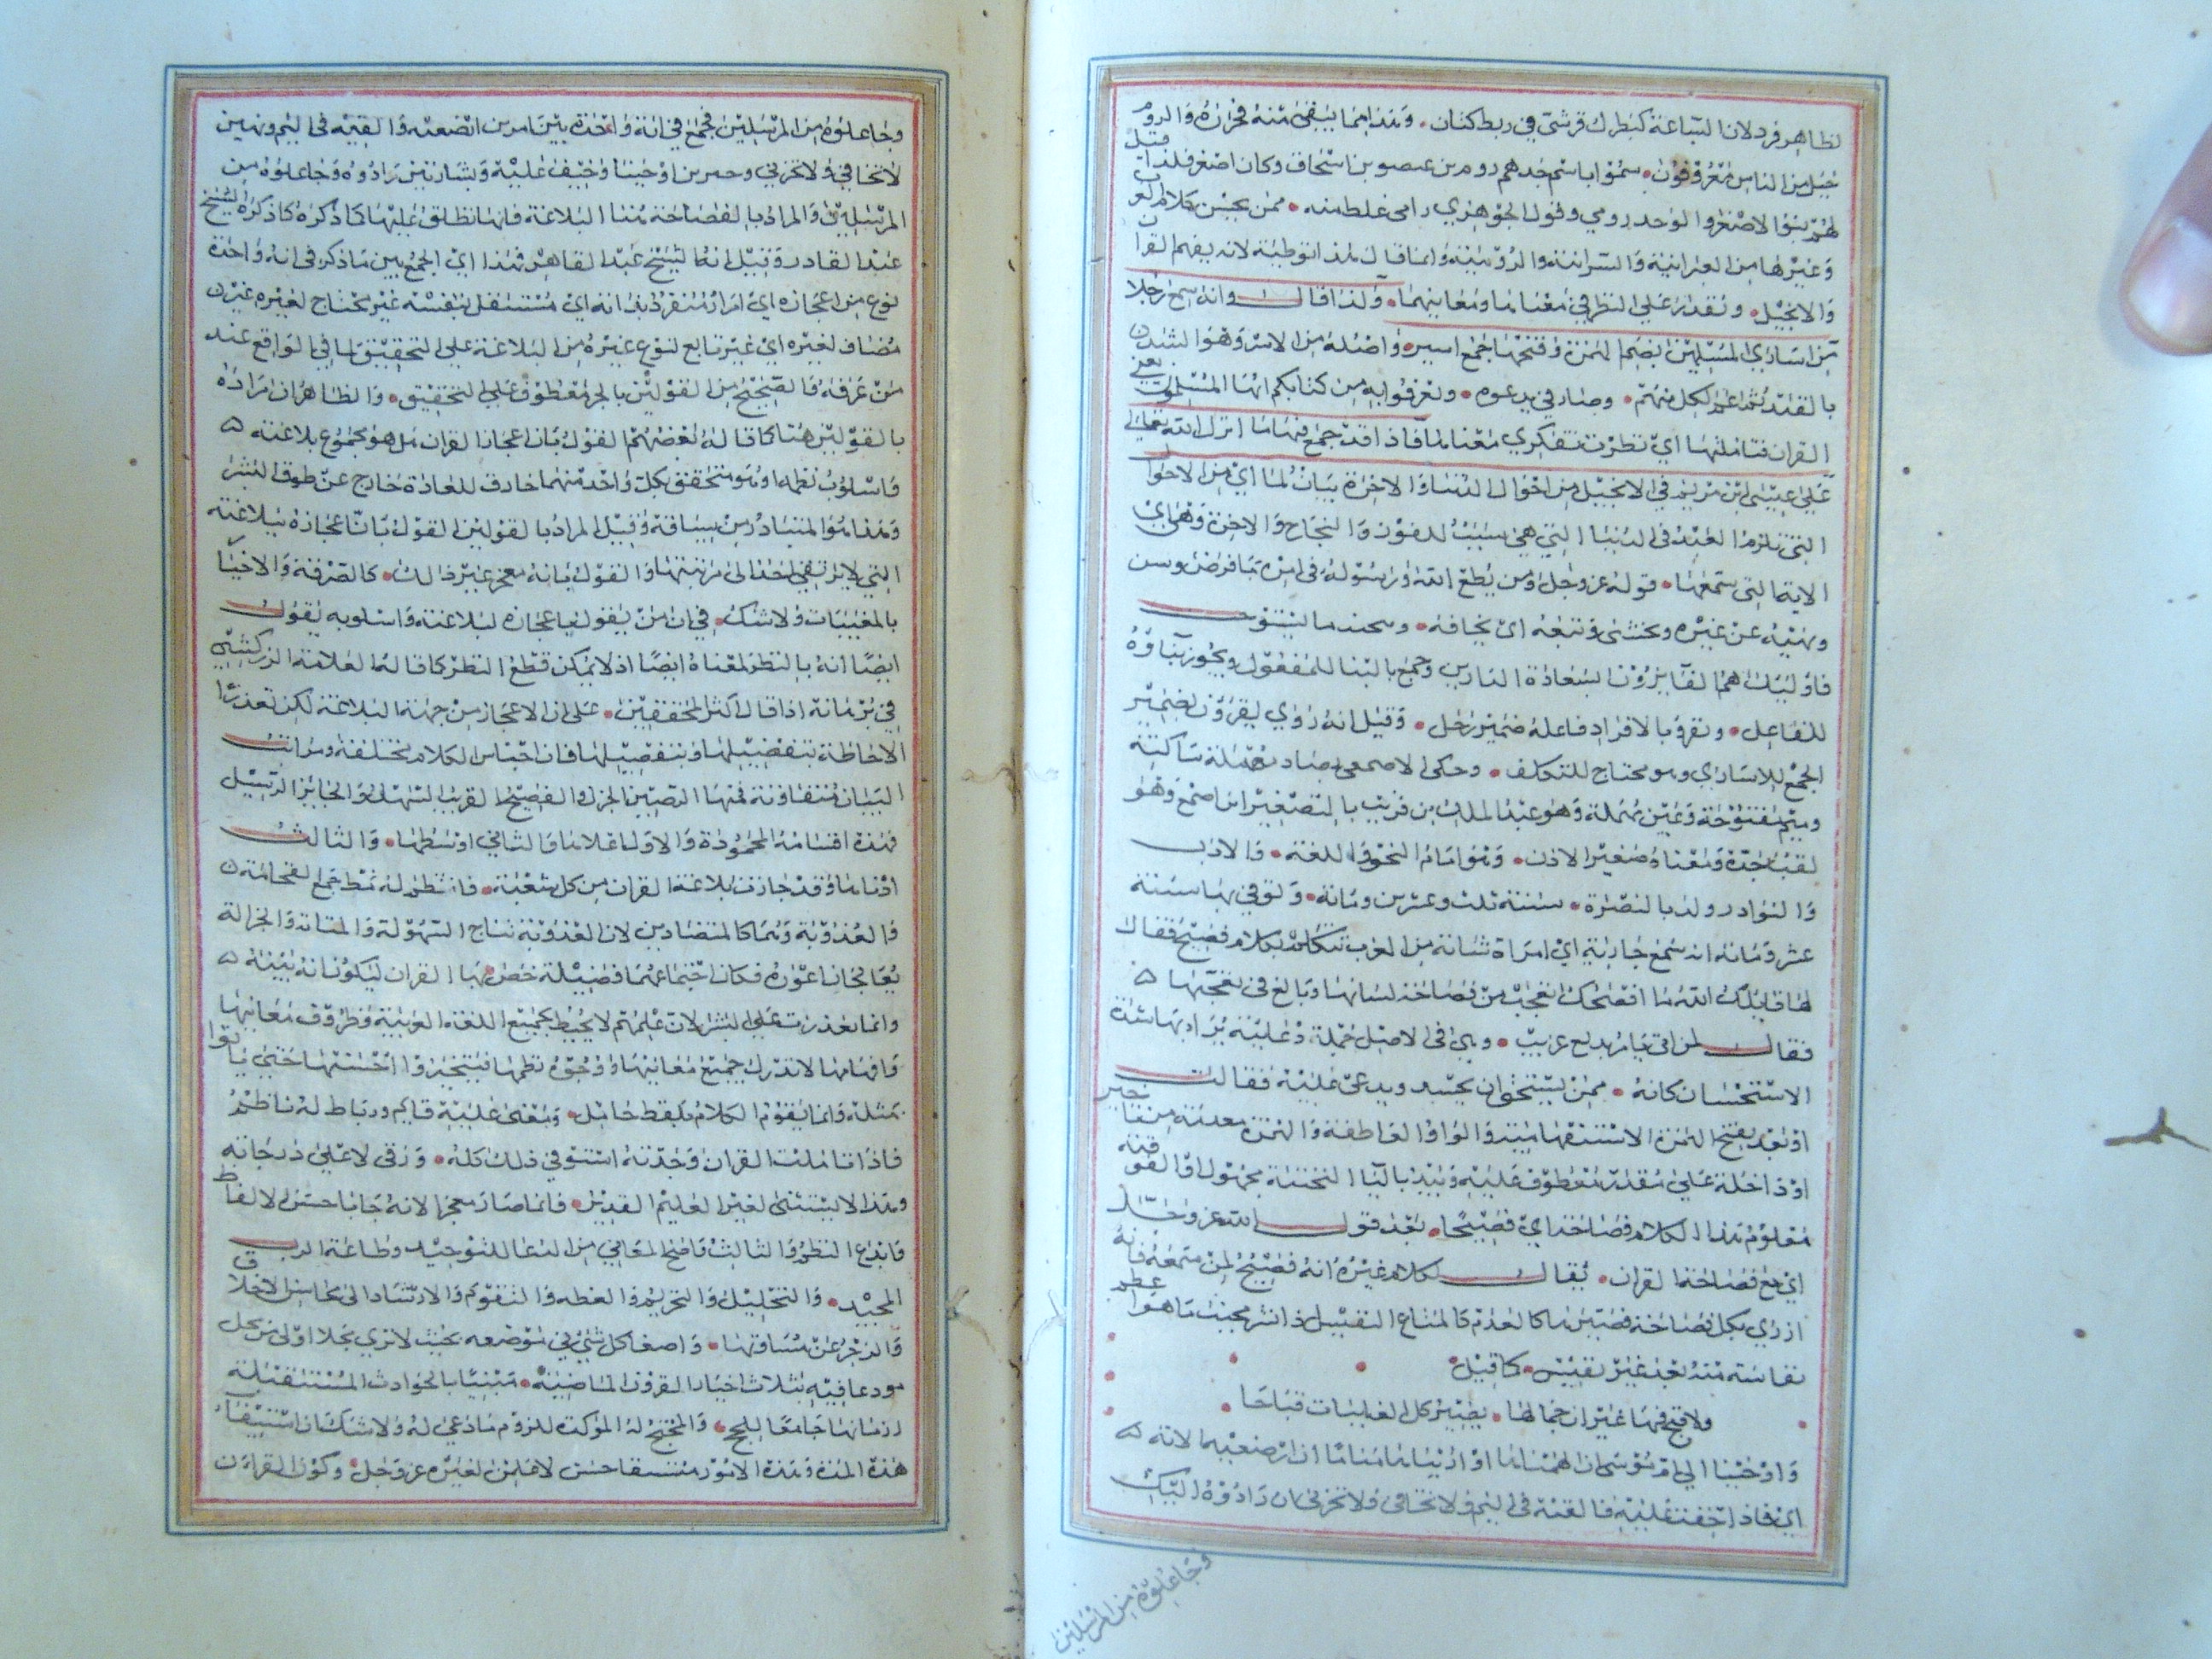 لظاهر فرد لان البتاعة كبطرك قرشي في ربط كتان وهذا مما يبقى منه فخزانه والروم
جيل من الناس معروفون سموا باسم جدهم روم بن عيصو بن اسحاق وكان اصغر فلذا قيل
لهم بنوا الاصغر والواحد رومي وقول الجوهري رامي غلط منه ممن يحسن كلام العرب
وغيرها من العبرانية والسريانية والرومية وانما قال هذا توطية لانه يفهم القران
والانجيل ونقدر على النظر في معناهما ومعانيهما ولذا قال وانه سمع رجلا
من اسارى المسلمين بضم الهمزة وفتحها جمع اسير واصله من الاسر وهو الشد
بالقيد ثم اعم لكل منهم وصار في يدعوه وتعرفوا به من كتابكم ايها المسلمون يعني
القران فتاملتها اي نظرت بتفكري معناها فاذا قد جمع فيها ما انزل الله تعالى
على عيسى ابن مريم في الانجيل من احوال الدنيا والاخرة بيان لما اي من الاحوال
التي تلزم العبد في الدنيا التي هي سبب للفوز والنجاح والاخرة وهي اي
الاية التي سمعها قوله عز وجل ومن يطع الله ورسوله في امره بما فرض وسن
ونهيه عن غيره ويخشى وتبعه اي يخافه
فاوليك هم الفايزون بسعادة الدارين وجمع بالبنا للمفعول ويجوز بناؤه
للفاعل ونقرؤ بالافراد فاعله ضمير رجل وقيل انه روي يقرؤن بضمير
الجمع للاسارى وهو محتاج للتكلف وحكى الاصمعي بصاد مهملة ساكنة
وميم مفتوحة وعين مهملة وهو عبد الملك بن قريب بالتصغير ابن اصمع وهو
لقب جده ومعناه صغير الاذن وهو امام النحو واللغة والادب
والنوادر ولد بالبصرة سنة ثلث وعشرين ومائة وتوفي بها سنة
عشر ومائة انه سمع جارية اي امراة شابة من العرب تتكلم بكلام فصيح فقال
لها قاتلك الله ما افصحك تعجب من فصاحة لسانها وبالغ في تعجبها
فقال لمن اتى بامر بديع غريب وهي في الاصل جملة دعائية يراد بها شدة
الاستحسان كانه ممن يستحق ان يحسد ويدعى عليه فقالت
او يعد بفتح الهمزة الاستفهامية والواو العاطفة والهمزة مقدمة من تاخير
او داخلة على مقدر معطوف عليه ويعد باليا التحتية مجهول او الفوقية
معلوم هذا الكلام فصاحة اي فصيحا بعد قول الله عز وجل
اي مع فصاحة القران يقال لكلام غيره انه فصيح لمن سمعه فانه
ازرى بكل فصاحة فصيرها كالعدم كالمتاع النفيس اذا نشر بجنب ما هو اعظم
نفاسة منه يعد غير نفيس كما قيل
ولا قبح فيها غير ان جمالها يصير كل الغانيات قباحا
واوحينا الى ام موسى ان الهمناها او اريناها مناما ان ارضعيه الاية
اي فاذا خفت عليه فالقيه في اليم ولا تخافي ولا تحزني انا رادوه اليك
وجاعلوه من المرسلين
وجاعلوه من المرسلين فجمع في اية واحدة بين امرين ارضعيه والقيه في اليم ونهيين
لا تخافي ولا تحزني وخبرين اوحينا وخيف عليه وبشارتين رادوه وجاعلوه من
المرسلين والمراد بالفصاحة هنا البلاغة فانها تطلق عليها كما ذكره كما ذكره الشيخ
عبد القادر وقيل انه الشيخ عبد القاهر فهذا اي الجمع بين ما ذكر في اية واحدة
نوع من اعجازه اي امر منفرد بذاته اي مستقل بنفسه غير محتاج لغيره غير
مضاف لغيره اي غير تابع لنوع غيره من البلاغة على التحقيق لما في الواقع عند
من عرفه والصحيح من القولين بالجر معطوف على التحقيق والظاهر ان مراده
بالقولين هنا كما قاله بعضهم القول بان اعجاز القران هل هو مجموع بلاغته
واسلوب نظمه او هو متحقق بكل واحد منهما خارق للعادة خارج عن طوق البشر
وهذا هو المتبادر من سياقه وقيل المراد بالقولين القول بان اعجازه ببلاغته
التي لا يرتقي احد الى مرتبتها والقول بانه معجز غير ذلك كالصرفة والاخبار
بالمغيبات ولا شك في ان من يقول باعجازه لبلاغته واسلوبه يقول
ايضا انه بالنظر لمعناه ايضا اذ لا يمكن قطع النظر كما قاله العلامة الزركشي
في برهانه اذا قال اكثر المحققين على ان الاعجاز من جهة البلاغة لكن تعذر
الاحاطة بتفضيلها وبتفصيلها فان اجناس الكلام مختلفة ومراتب
البيان متفاوتة فمنها الرصين الجزل والفصيح القريب السهل والجايز الرسل
فهذه اقسامه المحمودة والاول اعلاها والثاني اوسطها والثالث
ادناها وقد حازت بلاغة القران من كل شعبة فانتظم له نمط جمع الفخامة
والعذوبة وهما كالمتضادين لان العذوبة نتاج السهولة والمتانة والجزالة
يعالجان اعورة فكان اجتماعهما فضيلة خص بها القران ليكون اية بينة
وانما تعذرت على البشر لان علمهم لا يحيط بجميع اللغة العربية وظروف معانيها
وافهامها لا تدرك جميع معانيها ووجوه نظمها فيتخيروا احسنها حتى ياتوا
بمثله وانما يقوم الكلام بلفظ حامل ومعنى عليه قايم ورباط له ناظم
فاذا تاملت القران وجدته استوفى ذلك كله ورقى لاعلى درجاته
وهذا لا يتسنى لغير العليم القدير فانما صار معجزا لانه جا باحسن الالفاظ
وابدع النظم والثالث واصح المعاني من الدعا للتوحيد وطاعة الرب
المجيد والتحليل والتحريم والعظة والتقويم والارشاد الى محاسن الاخلاق
والزجر عن مساويها واضعا كل شي في موضعه بحيث لا ترى محلا اولى من محل
مودعا فيه بثلاث اخبار القرون الماضية منبئا بالحوادث المستقبلة
ازمانها جامعا للحجج والمحتج له الموكدة للزوم ما دعي له ولا شك ان استيفاء
هذه المدة وهذه الامور متسقا حسن لا يمكن لغيره عز وجل وكون القران